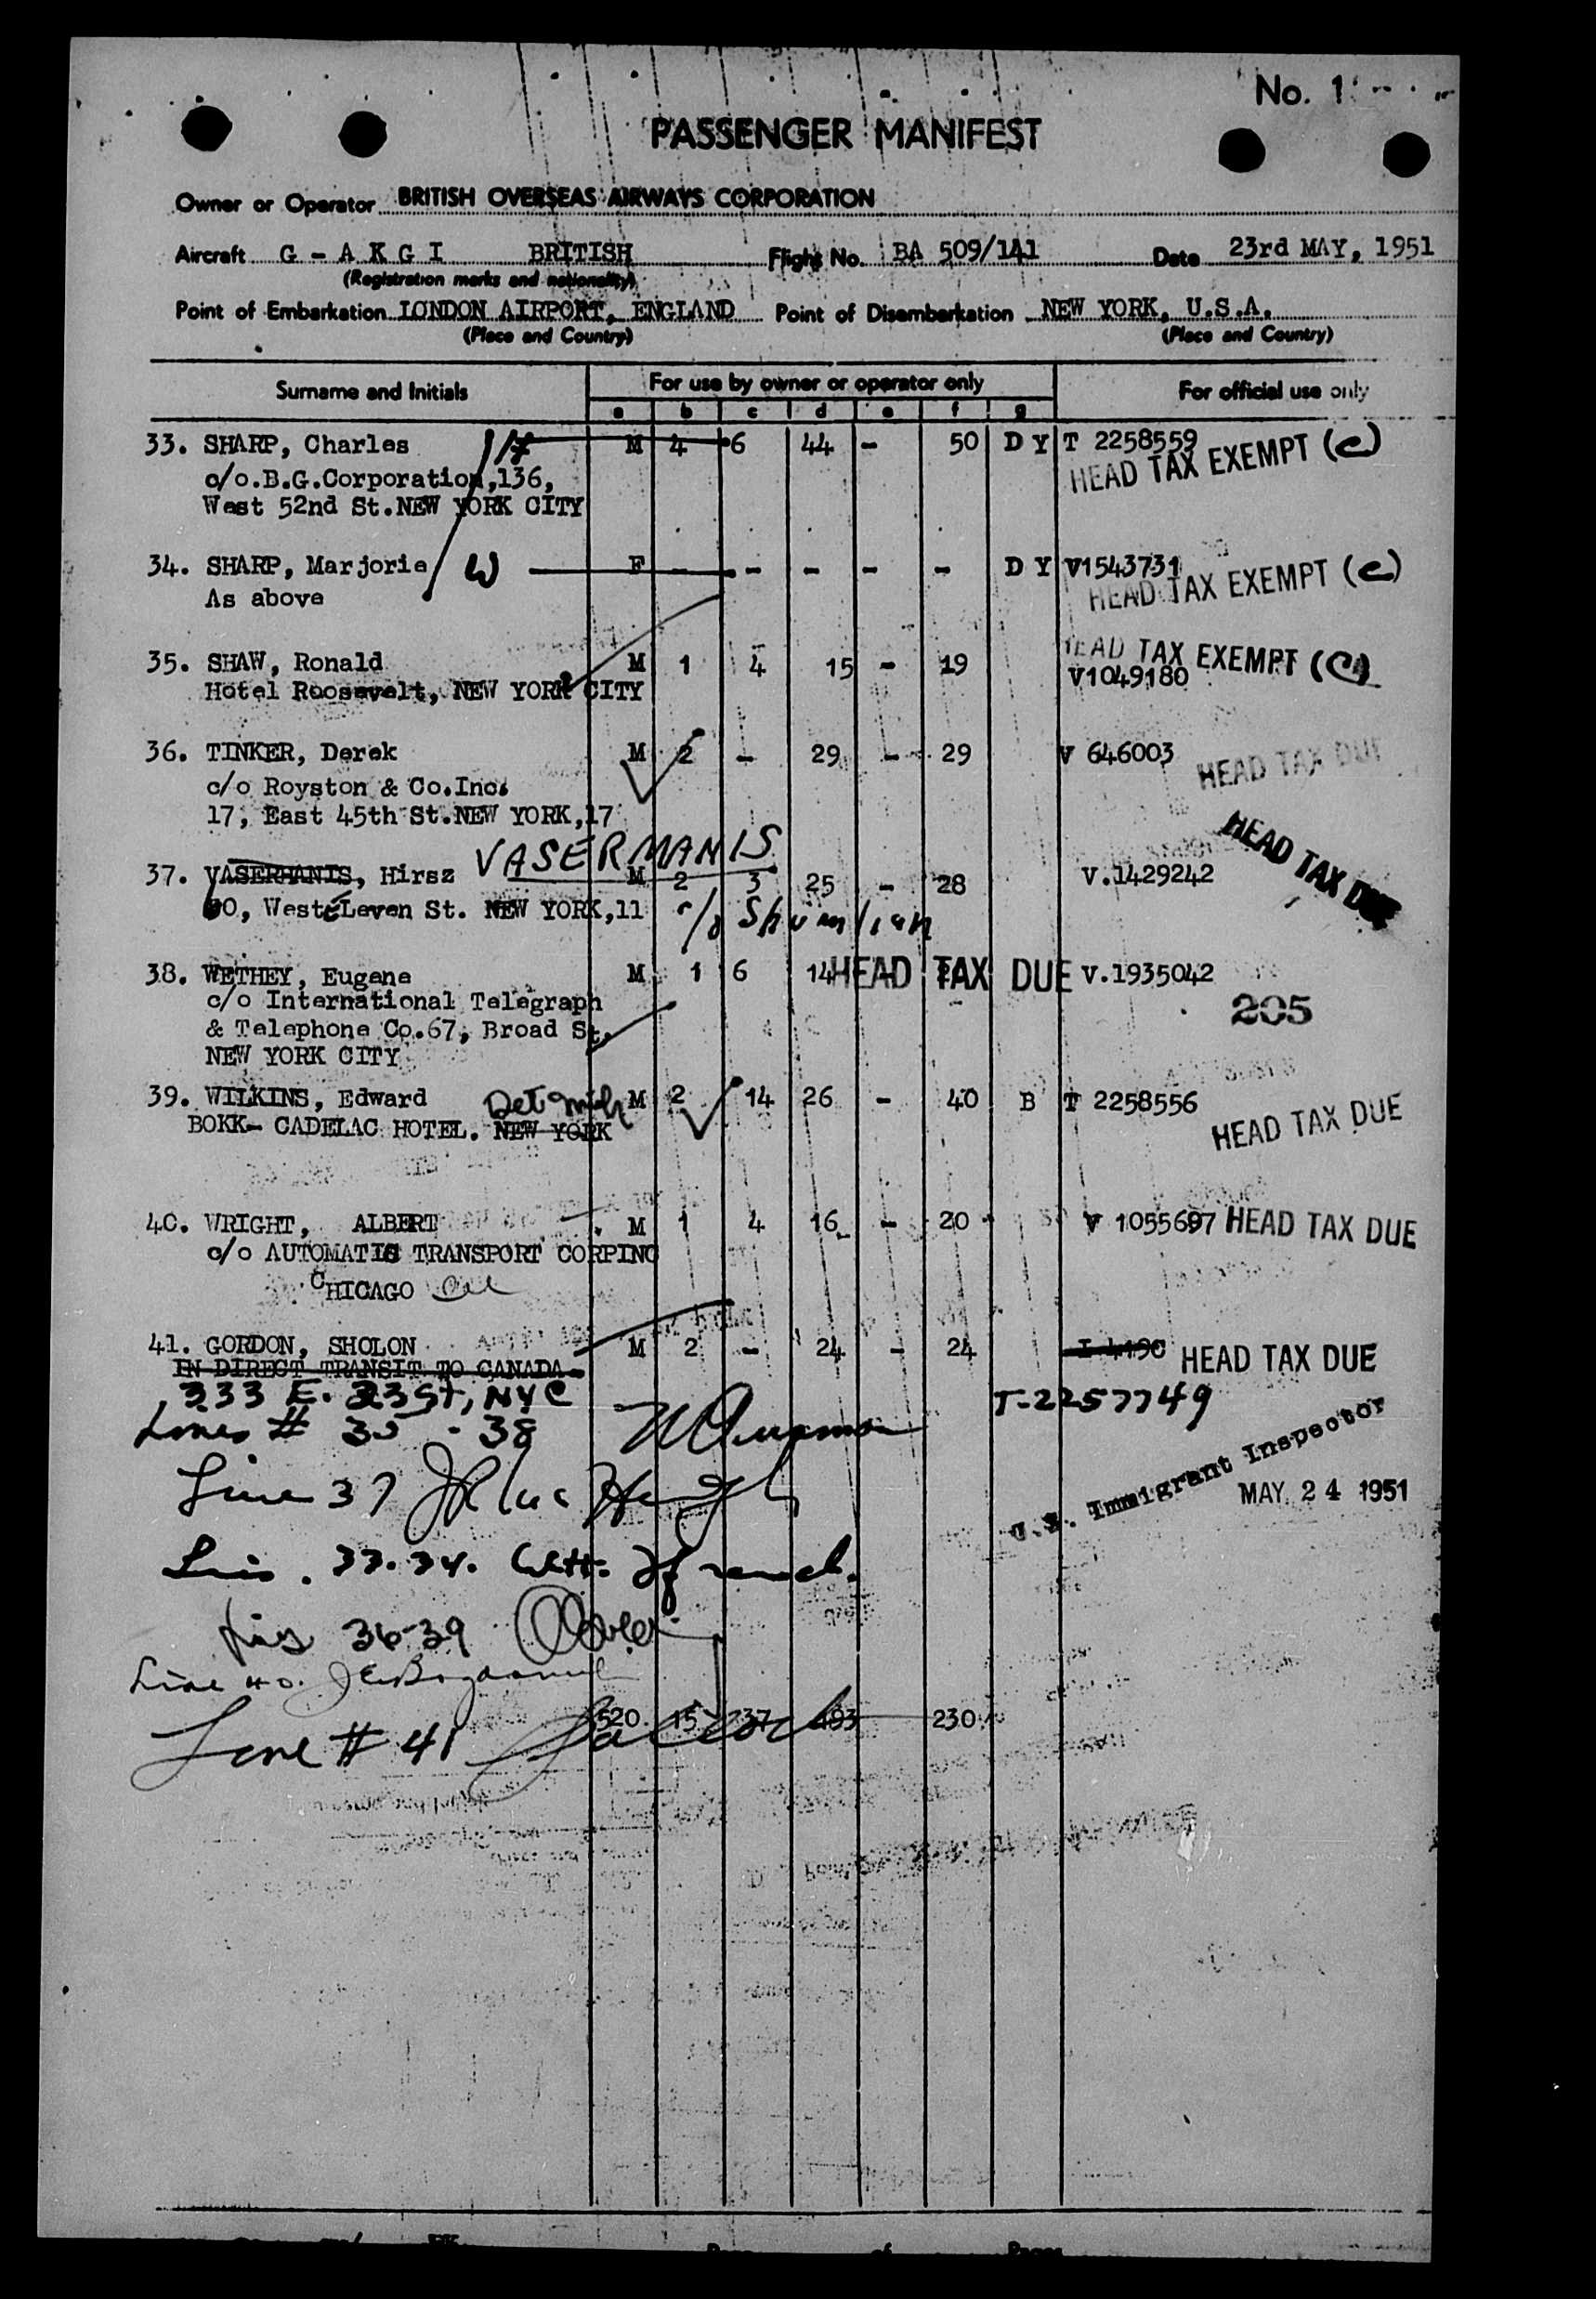 No. 1
PASSENGER MANIFEST
Owner or Operator BRITISH OVERSEAS AIRWAYS CORPORATION
Aircraft G - A K G I BRITISH Flight No. BA 509/141 Date 23rd MAY, 1951
(Registration marks and nationality)
Point of Embarkation LONDON AIRPORT, ENGLAND Point of Disembarkation NEW YORK, U.S.A.
(Place and Country) (Place and Country)
Surname and Initials For use by owner or operator only For official use only
a b c d e f g
33. SHARP, Charles H M 4 6 44 - 50 D Y T 2258559
HEAD TAX EXEMPT (C)
c/o.B.G.Corporation,136,
West 52nd St.NEW YORK CITY
34. SHARP, Marjorie W F - - - - - D Y V1543731
As above HEAD TAX EXEMPT (C)
35. SHAW, Ronald M 1 4 15 - 19 HEAD TAX EXEMPT (C)
Hotel Roosevelt, NEW YORK CITY V1049180
36. TINKER, Derek M 2 - 29 - 29 V 646003 HEAD TAX DUE
c/o Royston & Co.Inc.
17, East 45th St.NEW YORK,17
VASERMANIS
37. VASERHANIS, Hirsz M 2 3 25 - 28 V.1429242 HEAD TAX DUE
60, West Eleven St. NEW YORK,11 c/o Shumlian
38. WETHEY, Eugene M 1 6 14 HEAD TAX DUE V.1935042
c/o International Telegraph 205
& Telephone Co.67, Broad St.
NEW YORK CITY
39. WILKINS, Edward Det Mich M 2 14 26 - 40 B T 2258556
BOKK- CADELAC HOTEL. NEW YORK HEAD TAX DUE
40. WRIGHT, ALBERT M 1 4 16 - 20 V 1055697 HEAD TAX DUE
c/o AUTOMATIC TRANSPORT CORPINC
CHICAGO Ill
41. GORDON, SHOLON M 2 - 24 - 24 I 4190 HEAD TAX DUE
IN DIRECT TRANSIT TO CANADA-
333 E. 23 St, NYC T-2257749
Lines # 35 - 38
Line 37
U.S. Immigrant Inspector
MAY 24 1951
33.34.
36-39
Line 40.
520 15 37 193 230
Line # 41